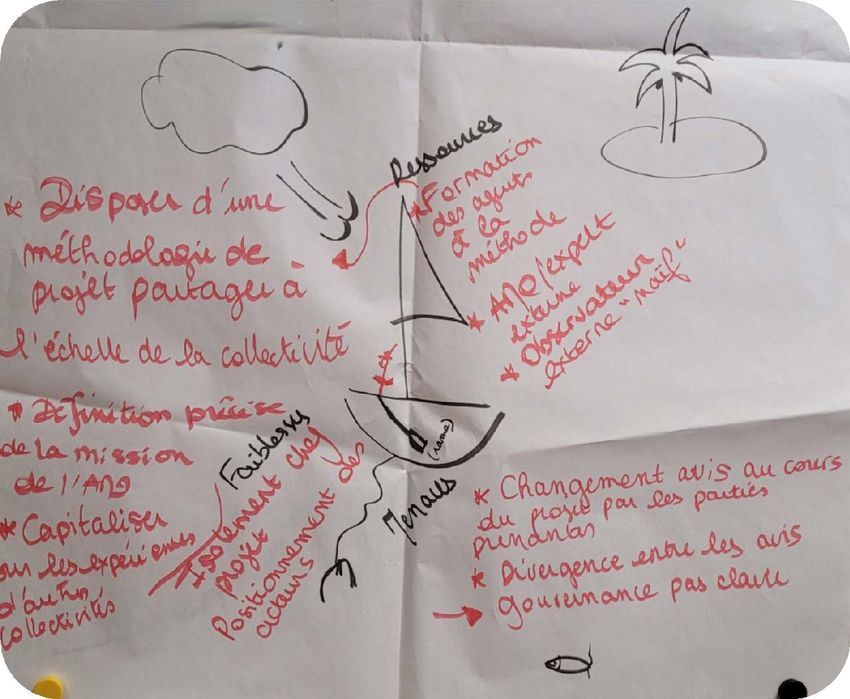 Ressources
* Formation
des agents
à la
méthode
* AMO/expert
externe
* Observateur
externe "naïf"
* Disposer d'une
méthodologie de
projet partager à
l'échelle de la collectivité
* Définition précise
de la mission
de l'AMO
* Capitaliser
sur les expériences
d'autres
collectivités
Faiblesses
Isolement chef
projet
Positionnement des
acteurs
(rame)
Menaces
* Changement avis au cours
du projet par les parties
prenantes
* Divergence entre les avis
→ gouvernance pas claire